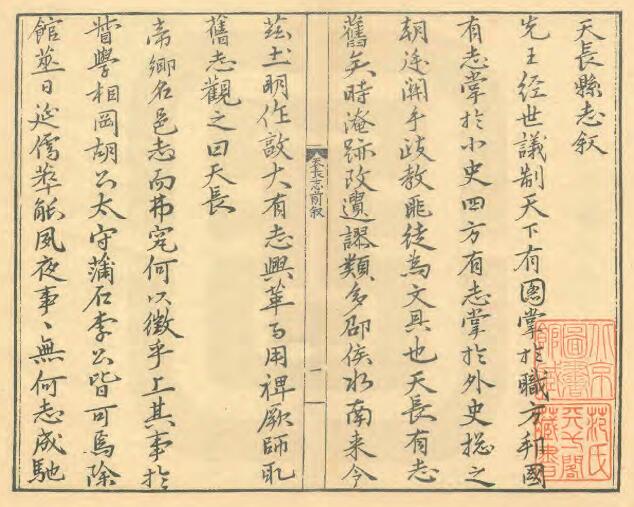 天長縣志叙
先王經世議制天下有圖掌扵職方邦國
有志掌扵小史四方有志掌扵外史揔之
朝廷關乎政教匪徒為文具也天長有志
舊矣時淹跡改遺謬類多邵侯水南来令
天長志前叙
一
茲土明作敦大有志興革而用裨厥師耴
舊志觀之曰天長
帝鄉名邑志而弗究何以徵乎上其事扵
督學相岡胡公太守蒲石李公皆可焉除
館日延儒萃夙夜事〻無何志成馳
北京圖書館藏
范氏天一閣藏書